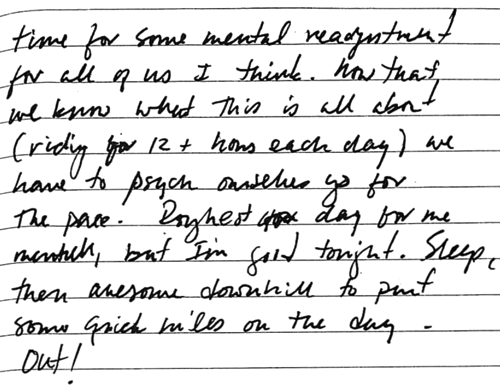 time for some mental readjustment
for all of us I think. Now that
we know what this is all about
(riding for 12 + hours each day) we
have to psych ourselves up for
the pace. Roughest day for me
mentally, but I'm good tonight. Sleep,
then awesome downhill to put
some quick miles on the day.
Out!